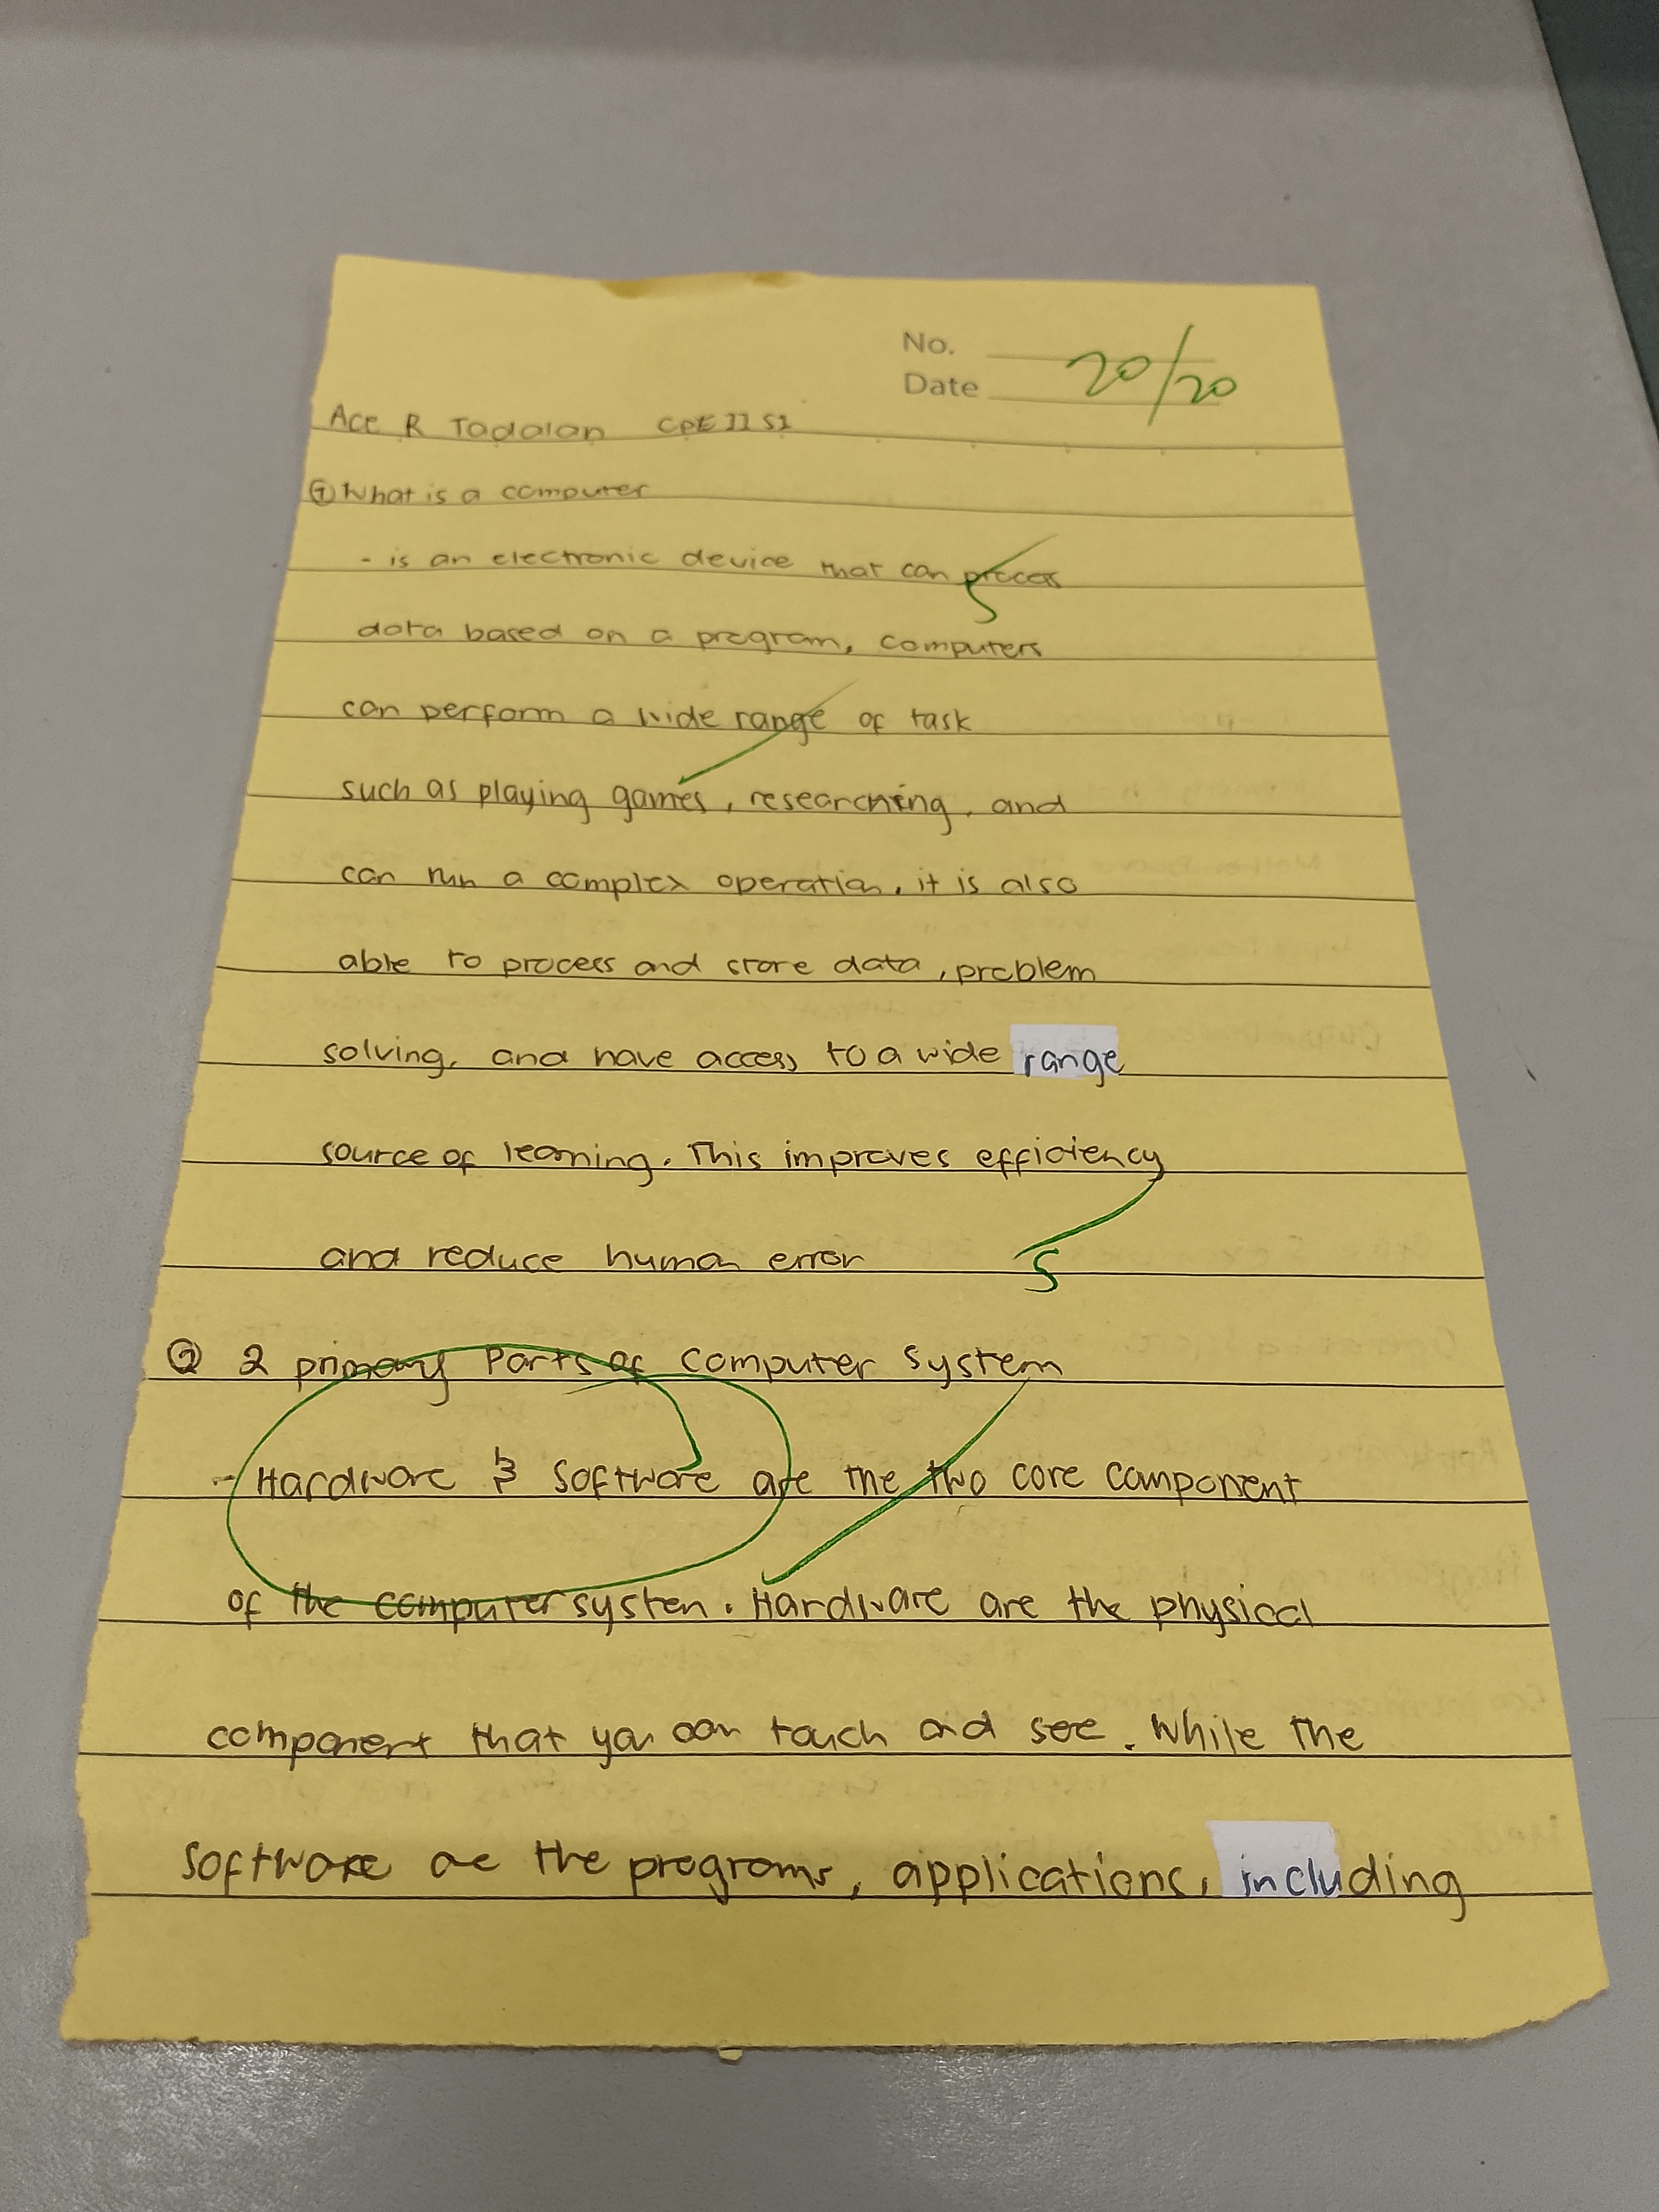 No.
Date 20/20
Ace R Tadalan CPE 11 S1
① What is a computer
- is an electronic device that can process
5
data based on a program, computers
can perform a wide range of task
such as playing games, researching, and
can run a complex operation, it is also
able to process and store data, problem
solving, and have access to a wide range
source of learning. This improves efficiency
and reduce human error 5
② 2 primary Parts of computer system
- Hardware & Software are the two core component
of the computer system. Hardware are the physical
component that you can touch and see. While the
Software are the programs, applications, including